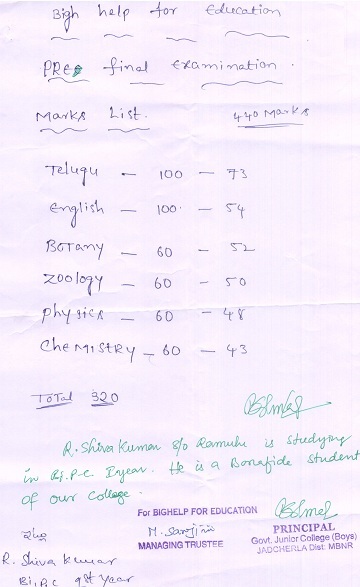 Bigh help for Education
PRE final examination.
Marks List.
440 Marks
Telugu - 100 - 73
English - 100 - 54
BOTany - 60 - 52
Zoology - 60 - 50
physics - 60 - 48
CheMISTRY - 60 - 43
ToTal 320
R. Shiva Kumar s/o Ramulu is studying
in Bi.P.C I year. He is a Bonafide student
of our College.
For BIGHELP FOR EDUCATION
M. Sarojini
MANAGING TRUSTEE
PRINCIPAL
Govt. Junior College (Boys)
JADCHERLA Dist: MBNR
R. Shiva Kumar
Bi.P.C 1st Year